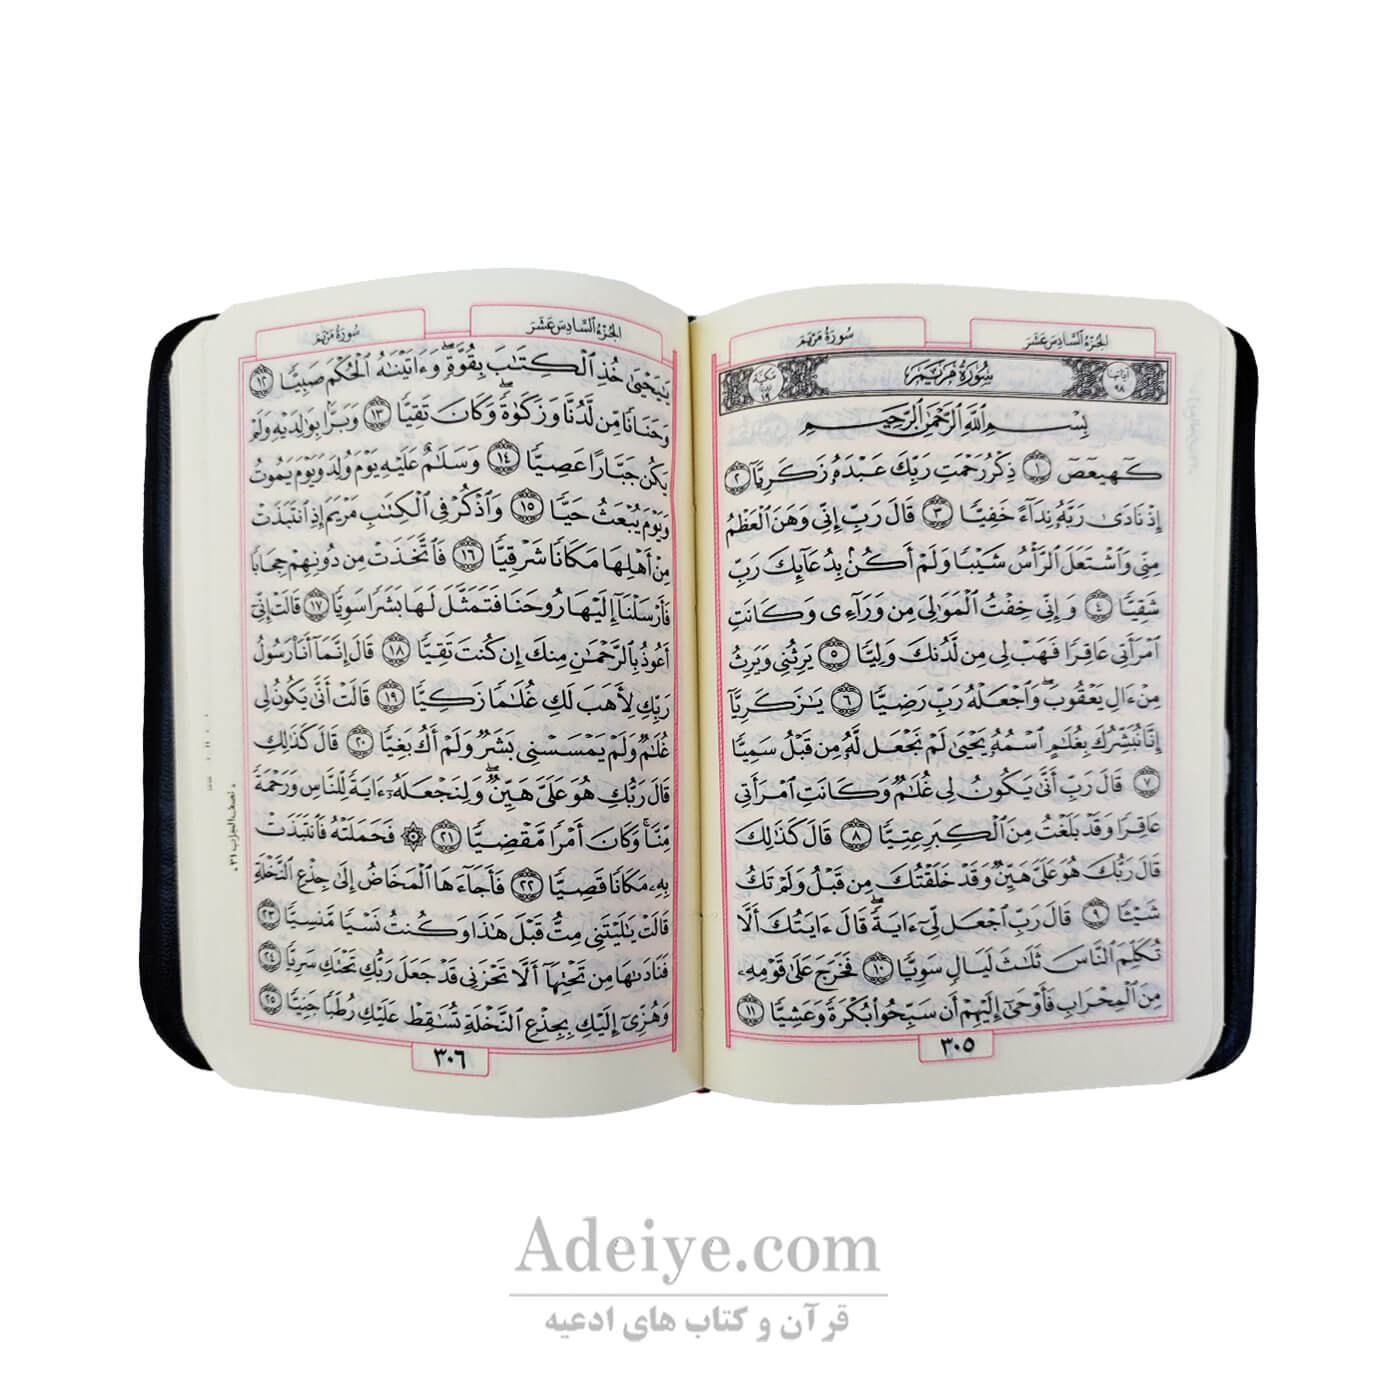 الجزء السادس عشر
سورة مريم
آياتها ٩٨
سورة مريم
مكية
بِسْمِ ٱللَّهِ ٱلرَّحْمَٰنِ ٱلرَّحِيمِ
كٓهيعٓصٓ ١ ذِكْرُ رَحْمَتِ رَبِّكَ عَبْدَهُۥ زَكَرِيَّآ ٢
إِذْ نَادَىٰ رَبَّهُۥ نِدَآءً خَفِيًّا ٣ قَالَ رَبِّ إِنِّي وَهَنَ ٱلْعَظْمُ
مِنِّي وَٱشْتَعَلَ ٱلرَّأْسُ شَيْبًا وَلَمْ أَكُنۢ بِدُعَآئِكَ رَبِّ
شَقِيًّا ٤ وَإِنِّي خِفْتُ ٱلْمَوَٰلِيَ مِن وَرَآءِي وَكَانَتِ
ٱمْرَأَتِي عَاقِرًا فَهَبْ لِي مِن لَّدُنكَ وَلِيًّا ٥ يَرِثُنِي وَيَرِثُ
مِنْ ءَالِ يَعْقُوبَ ۖ وَٱجْعَلْهُ رَبِّ رَضِيًّا ٦ يَٰزَكَرِيَّآ
إِنَّا نُبَشِّرُكَ بِغُلَٰمٍ ٱسْمُهُۥ يَحْيَىٰ لَمْ نَجْعَل لَّهُۥ مِن قَبْلُ سَمِيًّا
٧ قَالَ رَبِّ أَنَّىٰ يَكُونُ لِي غُلَٰمٌ وَكَانَتِ ٱمْرَأَتِي
عَاقِرًا وَقَدْ بَلَغْتُ مِنَ ٱلْكِبَرِ عِتِيًّا ٨ قَالَ كَذَٰلِكَ
قَالَ رَبُّكَ هُوَ عَلَيَّ هَيِّنٌ وَقَدْ خَلَقْتُكَ مِن قَبْلُ وَلَمْ تَكُ
شَيْـًٔا ٩ قَالَ رَبِّ ٱجْعَل لِّيٓ ءَايَةً ۚ قَالَ ءَايَتُكَ أَلَّا
تُكَلِّمَ ٱلنَّاسَ ثَلَٰثَ لَيَالٍ سَوِيًّا ١٠ فَخَرَجَ عَلَىٰ قَوْمِهِۦ
مِنَ ٱلْمِحْرَابِ فَأَوْحَىٰٓ إِلَيْهِمْ أَن سَبِّحُوا۟ بُكْرَةً وَعَشِيًّا ١١
٣٠٥
الجزء السادس عشر
سورة مريم
يَٰيَحْيَىٰ خُذِ ٱلْكِتَٰبَ بِقُوَّةٍ ۖ وَءَاتَيْنَٰهُ ٱلْحُكْمَ صَبِيًّا ١٢
وَحَنَانًا مِّن لَّدُنَّا وَزَكَوٰةً ۖ وَكَانَ تَقِيًّا ١٣ وَبَرًّۢا بِوَٰلِدَيْهِ وَلَمْ
يَكُن جَبَّارًا عَصِيًّا ١٤ وَسَلَٰمٌ عَلَيْهِ يَوْمَ وُلِدَ وَيَوْمَ يَمُوتُ
وَيَوْمَ يُبْعَثُ حَيًّا ١٥ وَٱذْكُرْ فِي ٱلْكِتَٰبِ مَرْيَمَ إِذِ ٱنتَبَذَتْ
مِنْ أَهْلِهَا مَكَانًا شَرْقِيًّا ١٦ فَٱتَّخَذَتْ مِن دُونِهِمْ حِجَابًا
فَأَرْسَلْنَآ إِلَيْهَا رُوحَنَا فَتَمَثَّلَ لَهَا بَشَرًا سَوِيًّا ١٧ قَالَتْ إِنِّيٓ
أَعُوذُ بِٱلرَّحْمَٰنِ مِنكَ إِن كُنتَ تَقِيًّا ١٨ قَالَ إِنَّمَآ أَنَا۠ رَسُولُ
رَبِّكِ لِأَهَبَ لَكِ غُلَٰمًا زَكِيًّا ١٩ قَالَتْ أَنَّىٰ يَكُونُ لِي
غُلَٰمٌ وَلَمْ يَمْسَسْنِي بَشَرٌ وَلَمْ أَكُ بَغِيًّا ٢٠ قَالَ كَذَٰلِكِ
قَالَ رَبُّكِ هُوَ عَلَيَّ هَيِّنٌ ۖ وَلِنَجْعَلَهُۥٓ ءَايَةً لِّلنَّاسِ وَرَحْمَةً
مِّنَّا ۚ وَكَانَ أَمْرًا مَّقْضِيًّا ٢١ ۞ فَحَمَلَتْهُ فَٱنتَبَذَتْ
بِهِۦ مَكَانًا قَصِيًّا ٢٢ فَأَجَآءَهَا ٱلْمَخَاضُ إِلَىٰ جِذْعِ ٱلنَّخْلَةِ
قَالَتْ يَٰلَيْتَنِي مِتُّ قَبْلَ هَٰذَا وَكُنتُ نَسْيًا مَّنسِيًّا ٢٣
فَنَادَىٰهَا مِن تَحْتِهَآ أَلَّا تَحْزَنِي قَدْ جَعَلَ رَبُّكِ تَحْتَكِ سَرِيًّا ٢٤
وَهُزِّيٓ إِلَيْكِ بِجِذْعِ ٱلنَّخْلَةِ تُسَٰقِطْ عَلَيْكِ رُطَبًا جَنِيًّا ٢٥
٣٠٦
نصف الحزب ٣١
Adeiye.com
قرآن و کتاب های ادعیه